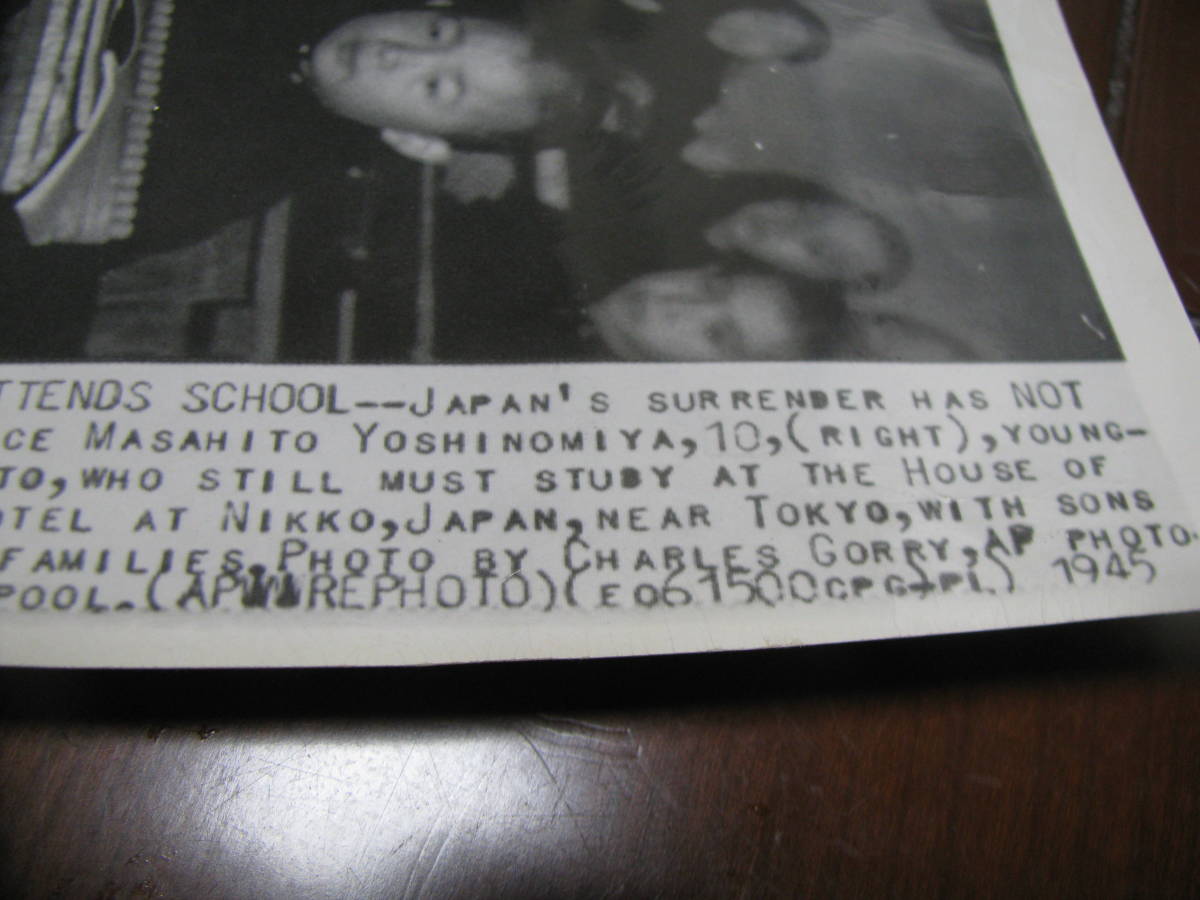 TTENDS SCHOOL--JAPAN'S SURRENDER HAS NOT
CE MASAHITO YOSHINOMIYA,10,(RIGHT),YOUNG-
TO,WHO STILL MUST STUDY AT THE HOUSE OF
OTEL AT NIKKO,JAPAN,NEAR TOKYO,WITH SONS
FAMILIES.PHOTO BY CHARLES GORRY,AP PHOTO-
POOL.(APWIREPHOTO)(E061500CPG-PL) 1945